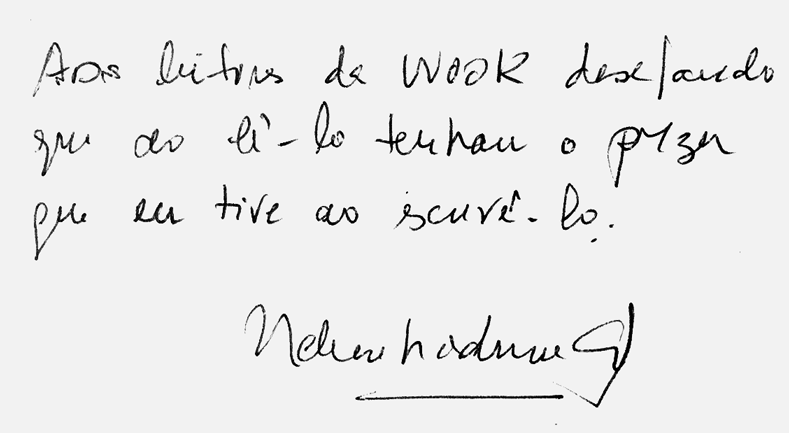 Aos leitores da WOOK desejando
que ao lê-lo tenham o prazer
que eu tive ao escrevê-lo.